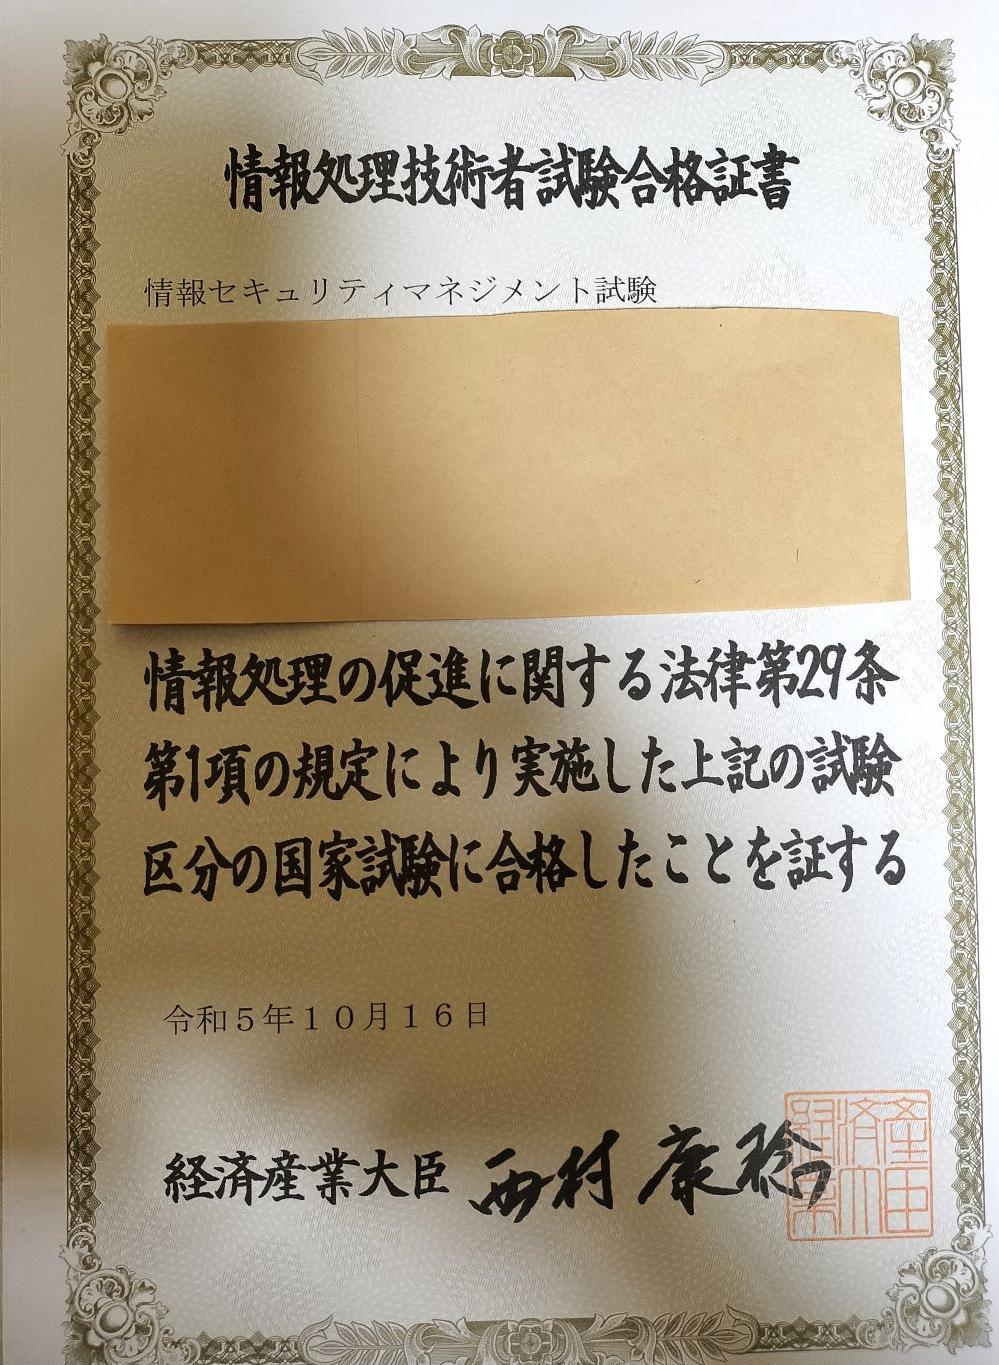 情報処理技術者試験合格証書
情報セキュリティマネジメント試験
情報処理の促進に関する法律第29条
第1項の規定により実施した上記の試験
区分の国家試験に合格したことを証する
令和５年１０月１６日
経済産業大臣 西村 康稔
経済産業大臣